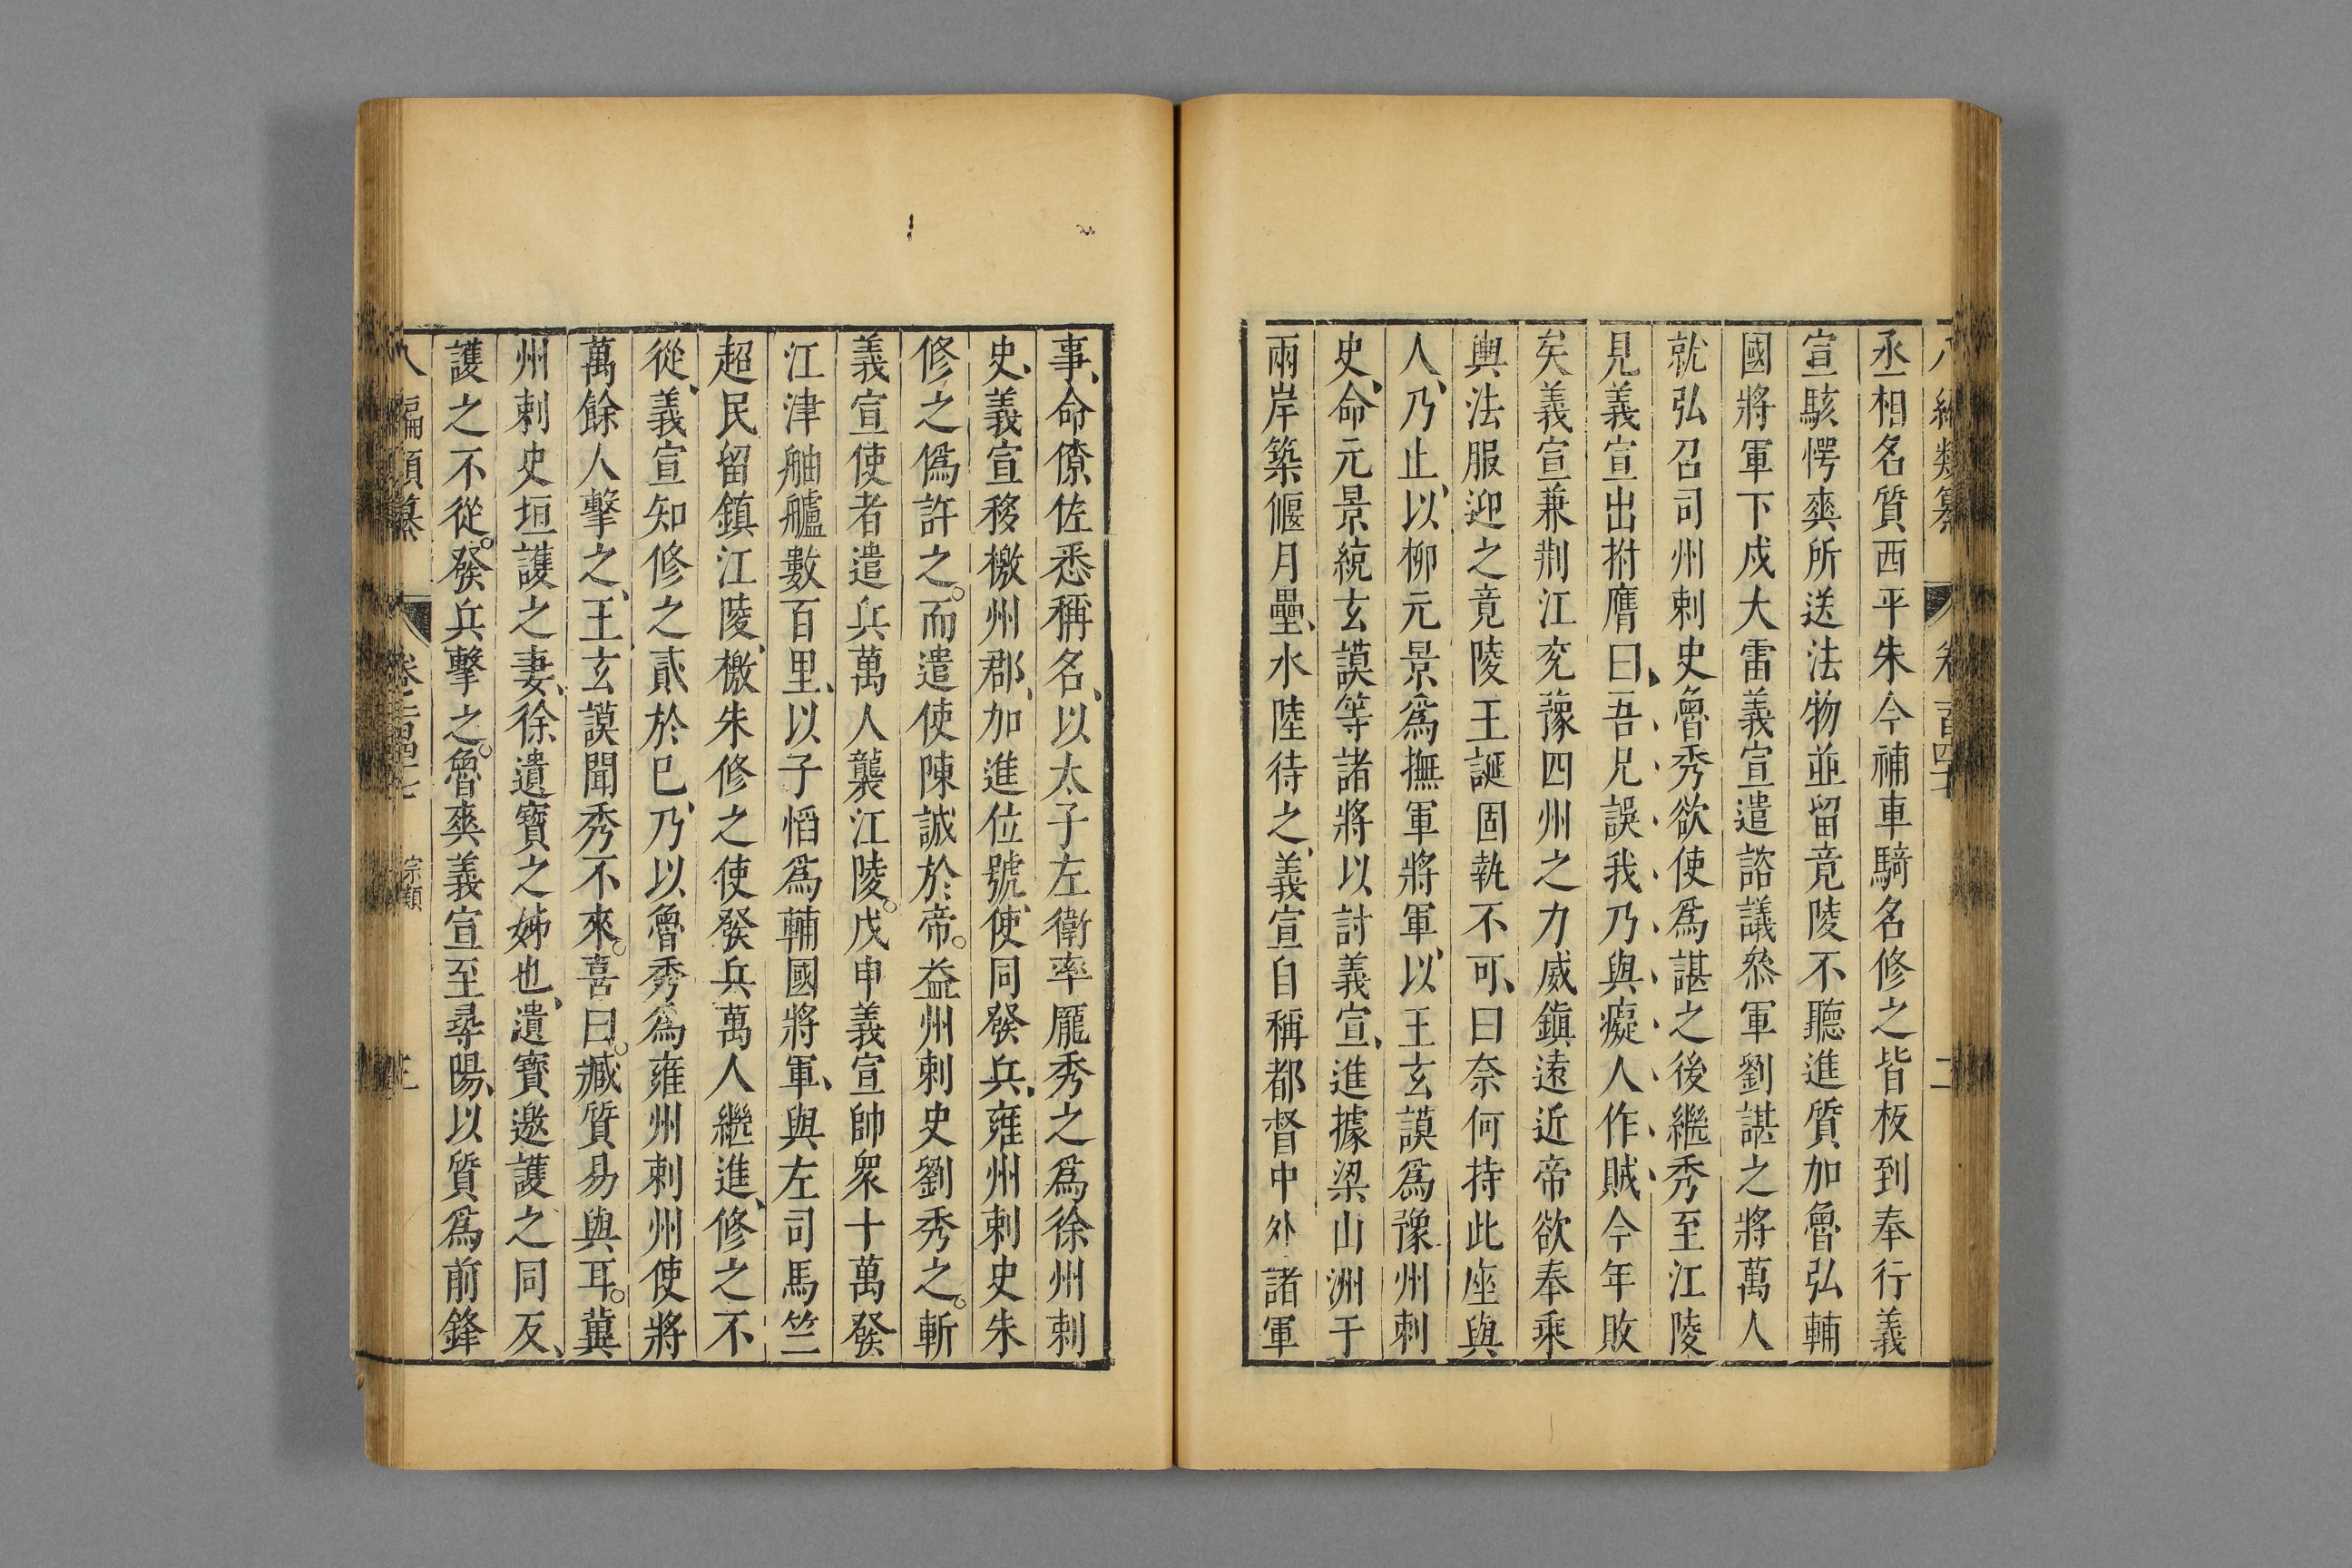 丞相名質西平朱今補車騎名修之皆板到奉行義
宣駭愕爽所送法物並留竟陵不聽進質加魯弘輔
國將軍下戍大雷義宣遣諮議叅軍劉諶之將萬人
就弘召司州刺史魯秀欲使爲諶之後繼秀至江陵
見義宣出拊膺曰吾兄誤我乃與癡人作賊今年敗
矣義宣兼荆江兖豫四州之力威鎭遠近帝欲奉乘
輿法服迎之竟陵王誕固執不可曰奈何持此座與
人乃止以柳元景爲撫軍將軍以王玄謨爲豫州刺
史命元景統玄謨等諸將以討義宣進據梁山洲于
兩岸築偃月壘水陸待之義宣自稱都督中外諸軍
事命僚佐悉稱名以太子左衛率龎秀之爲徐州刺
史義宣移檄州郡加進位號使同發兵雍州刺史朱
修之僞許之。而遣使陳誠於帝。益州刺史劉秀之。斬
義宣使者遣兵萬人襲江陵。戊申義宣帥衆十萬發
江津舳艫數百里以子慆爲輔國將軍與左司馬竺
超民留鎮江陵檄朱修之使發兵萬人繼進修之不
從義宣知修之貳於巳乃以魯秀爲雍州刺州使將
萬餘人擊之王玄謨聞秀不來。喜曰。臧質易與耳。冀
州刺史垣護之妻徐遺寶之姊也遺寶邀護之同反
護之不從。發兵擊之。魯爽義宣至尋陽以質爲前鋒
八編類纂
宗類